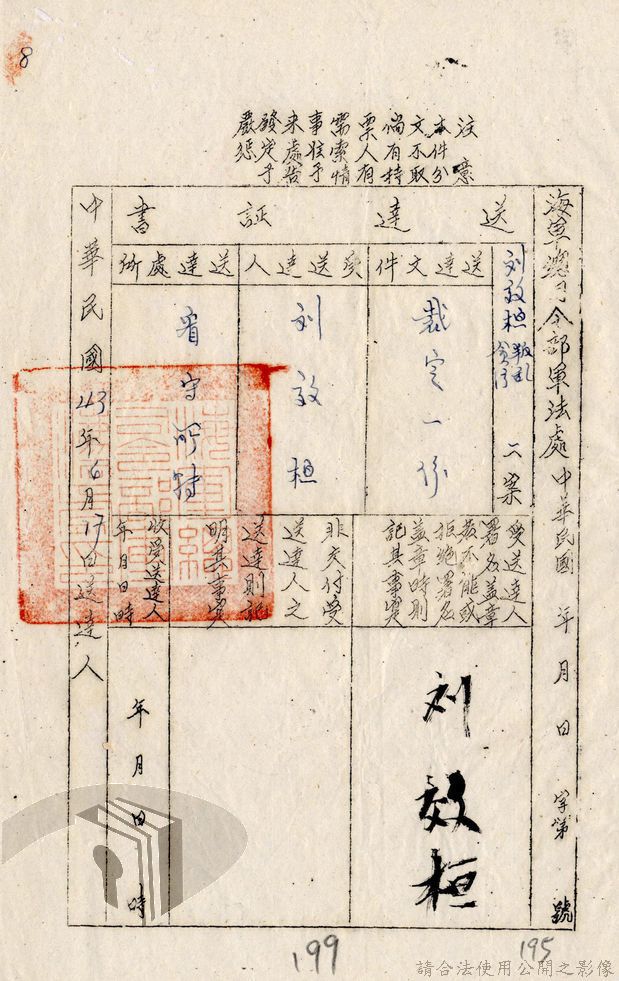 8
注意
本件分
文不取
倘有持
票人有
需索情
事於予
來處告
發定予
嚴懲
海軍總司令部軍法處中華民國 年 月 日 字第 號
送達証書
刘效桓叛乱貪污二案
送達文件
裁定一份
應送達人
刘效桓
送達處所
看守所特
受送達人
署名蓋章
或不能或
拒絕署名
蓋章時則
記其事實
刘效桓
非交付受
送達人之
送達則記
明其事實
收受送達人
年月日時
年 月 日 時
中華民國43年6月17日送達人
199
195
請合法使用公開之影像